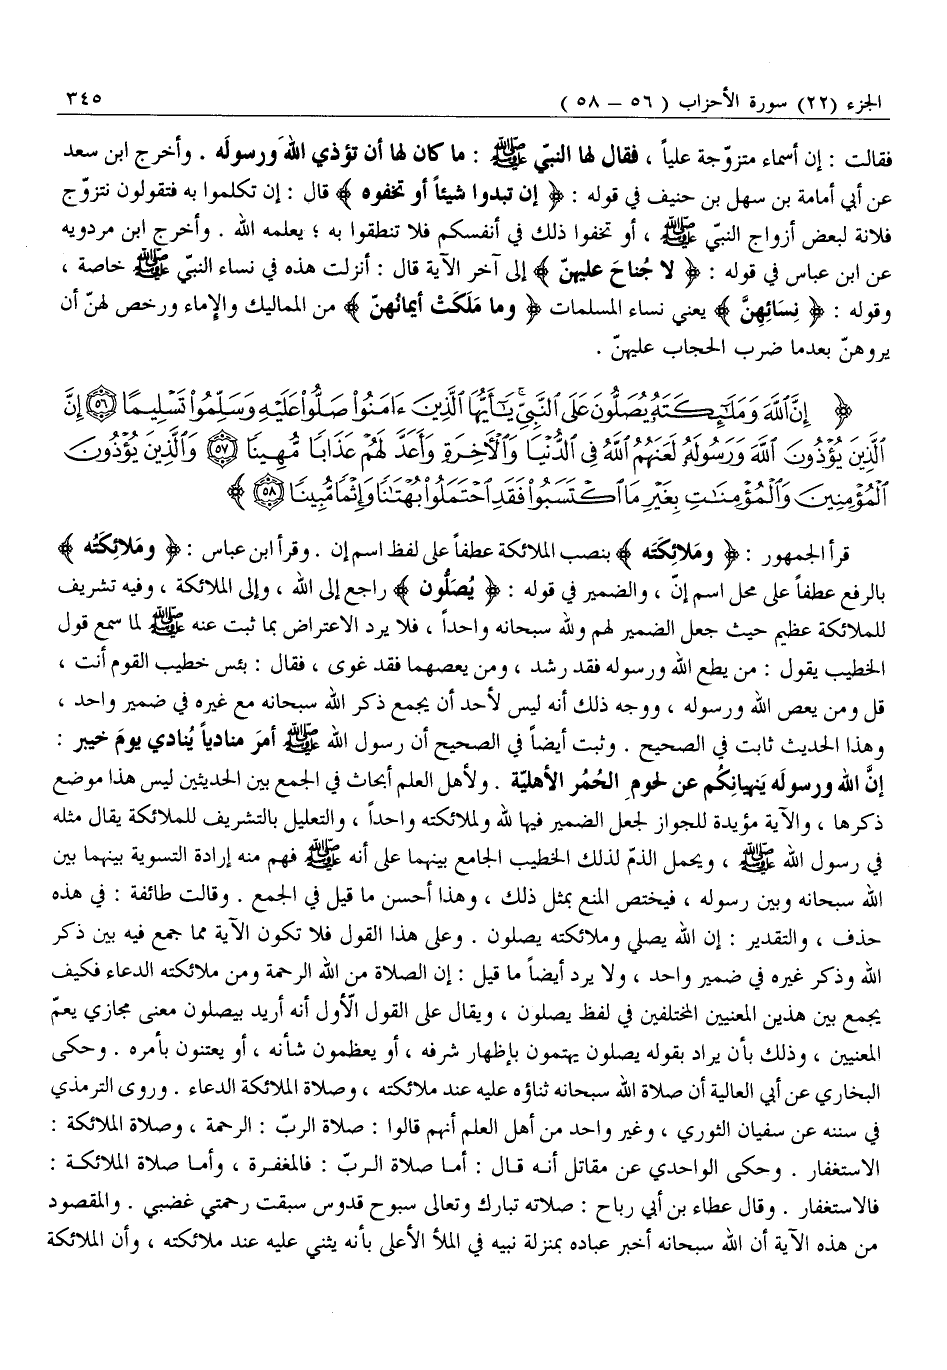 الجزء (٢٢) سورة الأحزاب ( ٥٦ – ٥٨ ) ٣٤٥
فقالت : إن أسماء متزوّجة علياً ، فقال لها النبيّ ﷺ : ما كان لها أن تؤذي اللهَ ورسولَه . وأخرج ابن سعد
عن أبي أمامة بن سهل بن حنيف في قوله : ﴿ إن تبدوا شيئاً أو تخفوه ﴾ قال : إن تكلموا به فتقولون نتزوّج
فلانة لبعض أزواج النبيّ ﷺ ، أو تخفوا ذلك في أنفسكم فلا تنطقوا به ؛ يعلمه الله . وأخرج ابن مردويه
عن ابن عباس في قوله : ﴿ لا جُناحَ عليهنّ ﴾ إلى آخر الآية قال : أنزلت هذه في نساء النبيّ ﷺ خاصة ،
وقوله : ﴿ نِسَائِهِنَّ ﴾ يعني نساء المسلمات ﴿ وما مَلَكَتْ أيمانُهنّ ﴾ من المماليك والإماء ورخص لهنّ أن
يروهنّ بعدما ضرب الحجاب عليهنّ .
﴿ إِنَّ ٱللَّهَ وَمَلَٰٓئِكَتَهُۥ يُصَلُّونَ عَلَى ٱلنَّبِيِّ ۚ يَٰٓأَيُّهَا ٱلَّذِينَ ءَامَنُوا۟ صَلُّوا۟ عَلَيْهِ وَسَلِّمُوا۟ تَسْلِيمًا ٥٦ إِنَّ
ٱلَّذِينَ يُؤْذُونَ ٱللَّهَ وَرَسُولَهُۥ لَعَنَهُمُ ٱللَّهُ فِى ٱلدُّنْيَا وَٱلْءَاخِرَةِ وَأَعَدَّ لَهُمْ عَذَابًا مُّهِينًا ٥٧ وَٱلَّذِينَ يُؤْذُونَ
ٱلْمُؤْمِنِينَ وَٱلْمُؤْمِنَٰتِ بِغَيْرِ مَا ٱكْتَسَبُوا۟ فَقَدِ ٱحْتَمَلُوا۟ بُهْتَٰنًا وَإِثْمًا مُّبِينًا ٥٨ ﴾
قرأ الجمهور : ﴿ ومَلائِكتَه ﴾ بنصب الملائكة عطفاً على لفظ اسم إن . وقرأ ابن عباس : ﴿ ومَلائِكتُه ﴾
بالرفع عطفاً على محل اسم إنّ ، والضمير في قوله : ﴿ يُصَلُّون ﴾ راجع إلى الله ، وإلى الملائكة ، وفيه تشريف
للملائكة عظيم حيث جعل الضمير لهم ولله سبحانه واحداً ، فلا يرد الاعتراض بما ثبت عنه ﷺ لما سمع قول
الخطيب يقول : من يطع الله ورسوله فقد رشد ، ومن يعصهما فقد غوى ، فقال : بئس خطيب القوم أنت ،
قل ومن يعص الله ورسوله ، ووجه ذلك أنه ليس لأحد أن يجمع ذكر الله سبحانه مع غيره في ضمير واحد ،
وهذا الحديث ثابت في الصحيح . وثبت أيضاً في الصحيح أن رسول الله ﷺ أمرَ منادياً يُنادي يومَ خيبر :
إنَّ الله ورسولَه يَنهيانِكُم عن لحومِ الحُمُر الأهليّة . ولأهل العلم أبحاث في الجمع بين الحديثين ليس هذا موضع
ذكرها ، والآية مؤيدة للجواز لجعل الضمير فيها لله ولملائكته واحداً ، والتعليل بالتشريف للملائكة يقال مثله
في رسول الله ﷺ ، ويحمل الذمّ لذلك الخطيب الجامع بينهما على أنه ﷺ فهم منه إرادة التسوية بينهما بين
الله سبحانه وبين رسوله ، فيختص المنع بمثل ذلك ، وهذا أحسن ما قيل في الجمع . وقالت طائفة : في هذه
حذف ، والتقدير : إن الله يصلي وملائكته يصلون . وعلى هذا القول فلا تكون الآية مما جمع فيه بين ذكر
الله وذكر غيره في ضمير واحد ، ولا يرد أيضاً ما قيل : إن الصلاة من الله الرحمة ومن ملائكته الدعاء فكيف
يجمع بين هذين المعنيين المختلفين في لفظ يصلون ، ويقال على القول الأول أنه أريد بيصلون معنى مجازي يعمّ
المعنيين ، وذلك بأن يراد بقوله يصلون يهتمون بإظهار شرفه ، أو يعظمون شأنه ، أو يعتنون بأمره . وحكى
البخاري عن أبي العالية أن صلاة الله سبحانه ثناؤه عليه عند ملائكته ، وصلاة الملائكة الدعاء . وروى الترمذي
في سننه عن سفيان الثوري ، وغير واحد من أهل العلم أنهم قالوا : صلاة الربّ : الرحمة ، وصلاة الملائكة :
الاستغفار . وحكى الواحدي عن مقاتل أنه قال : أما صلاة الربّ : فالمغفرة ، وأما صلاة الملائكة :
فالاستغفار . وقال عطاء بن أبي رباح : صلاته تبارك وتعالى سبوح قدوس سبقت رحمتي غضبي . والمقصود
من هذه الآية أن الله سبحانه أخبر عباده بمنزلة نبيه في الملأ الأعلى بأنه يثني عليه عند ملائكته ، وأن الملائكة